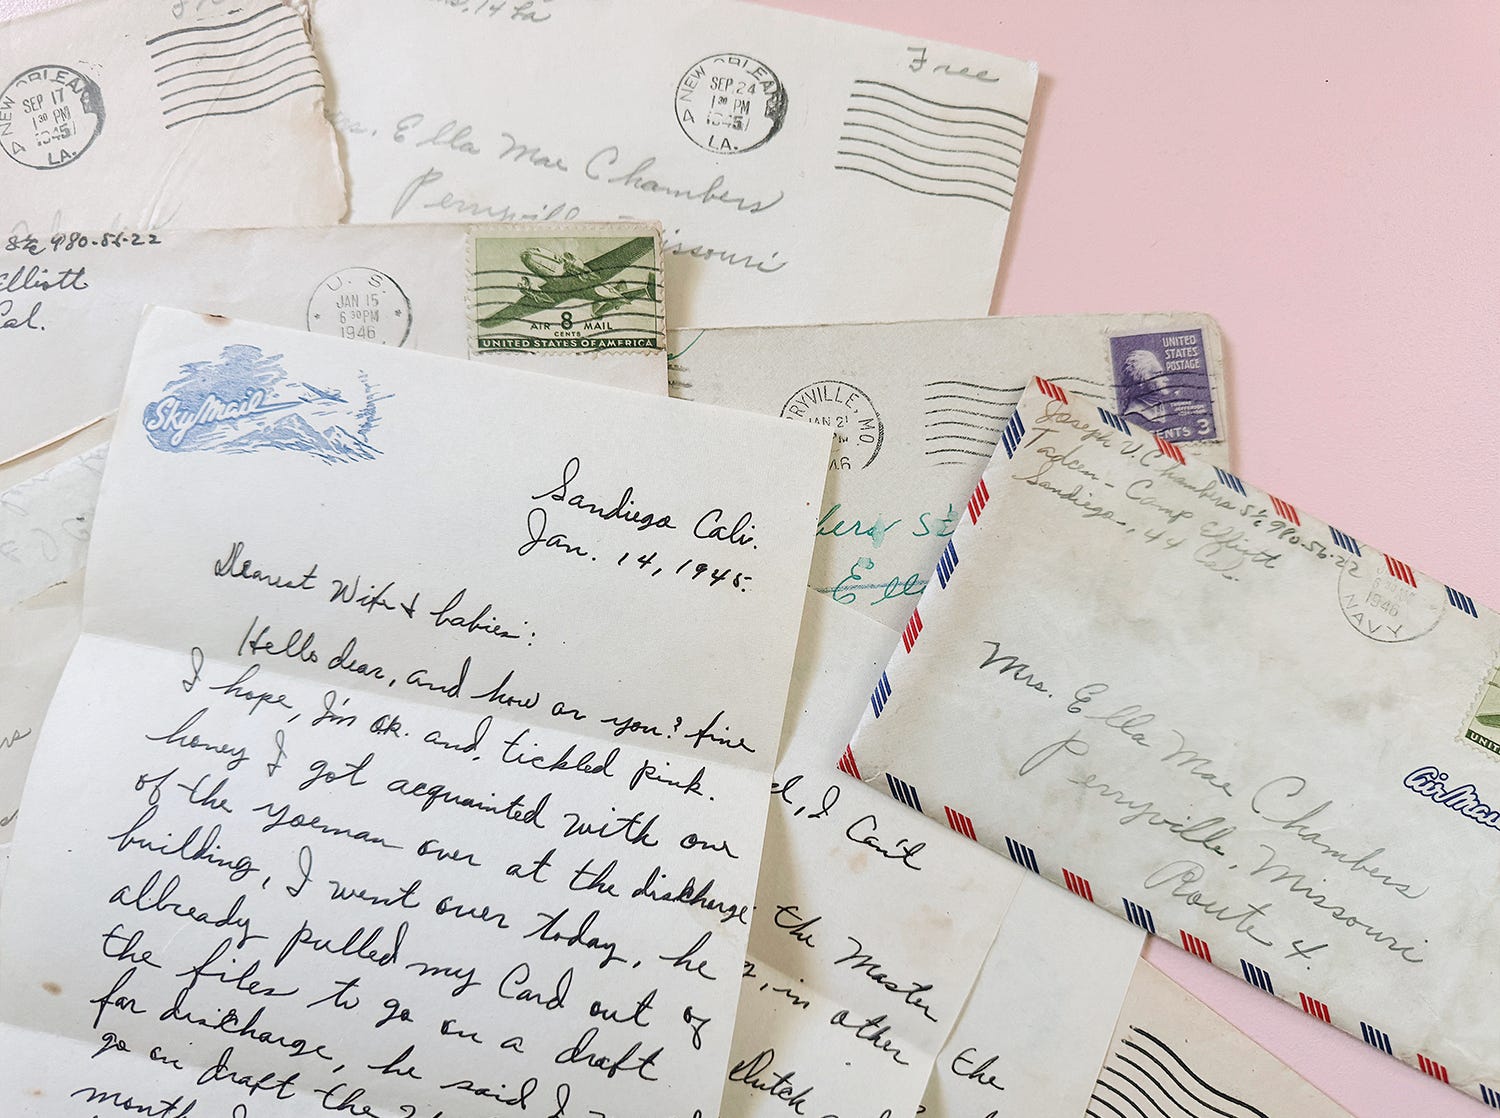 NEW ORLEANS
SEP 17
1 30 PM
1945
LA.
NEW ORLEANS
SEP 24
1 30 PM
1945
LA.
Free
Ella Mae Chambers
Perryville Missouri
S 1/c 980-56-22
Elliott
Cal.
U. S.
JAN 15
6 30 PM
1946
AIR 8 MAIL
CENTS
UNITED STATES OF AMERICA
RYVILLE, MO.
JAN 21
UNITED
STATES
POSTAGE
CENTS 3
Elle
Sky Mail
Sandiego Cali.
Jan. 14, 1945.
Dearest Wife & babies:
Hello dear, and how ar you? fine
I hope, I'm ok. and, tickled pink.
honey I got acquainted with one
of the yoeman over at the discharge
building, I went over today, he
allready pulled my Card out of
the files to go on a draft
for discharge, he said I
go on draft the
month
d, I Can't
the Master
in other
the
Dutch
Joseph V. Chambers S 1/c 980-56-22
Tadcen - Camp Elliott
Sandiego, 44 Cal.
1946
NAVY
Mrs. Ella Mae Chambers
Perryville, Missouri
Route 4.
Air Mail
UNIT